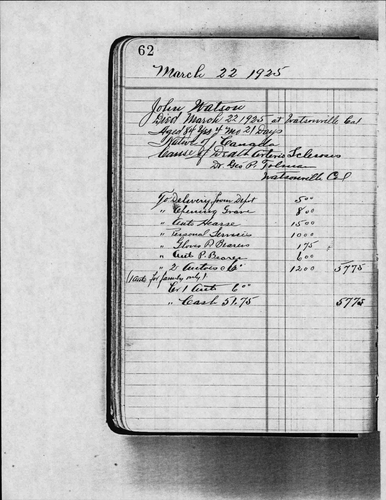 62
March 22 1925
John Watson
Died March 22 1925 at Watsonville Cal
Aged 84 Yrs 4 Mo 21 Days
Native of Canada
Cause of Death Arterio Sclerosis
Dr Geo P. Tolman
Watsonville Cal
To Delivery from Depot 5 00
" Opening Grave 8 00
" Auto Hearse 15 00
" Personal Services 10 00
" Gloves P. Bearers 1 75
" Aut P. Bearer 6 00
" 2 Autoes @ 6 00 12 00 57 75
(1 auto for family only)
Cr 1 Auto 6 00
" Cash 51.75 57 75